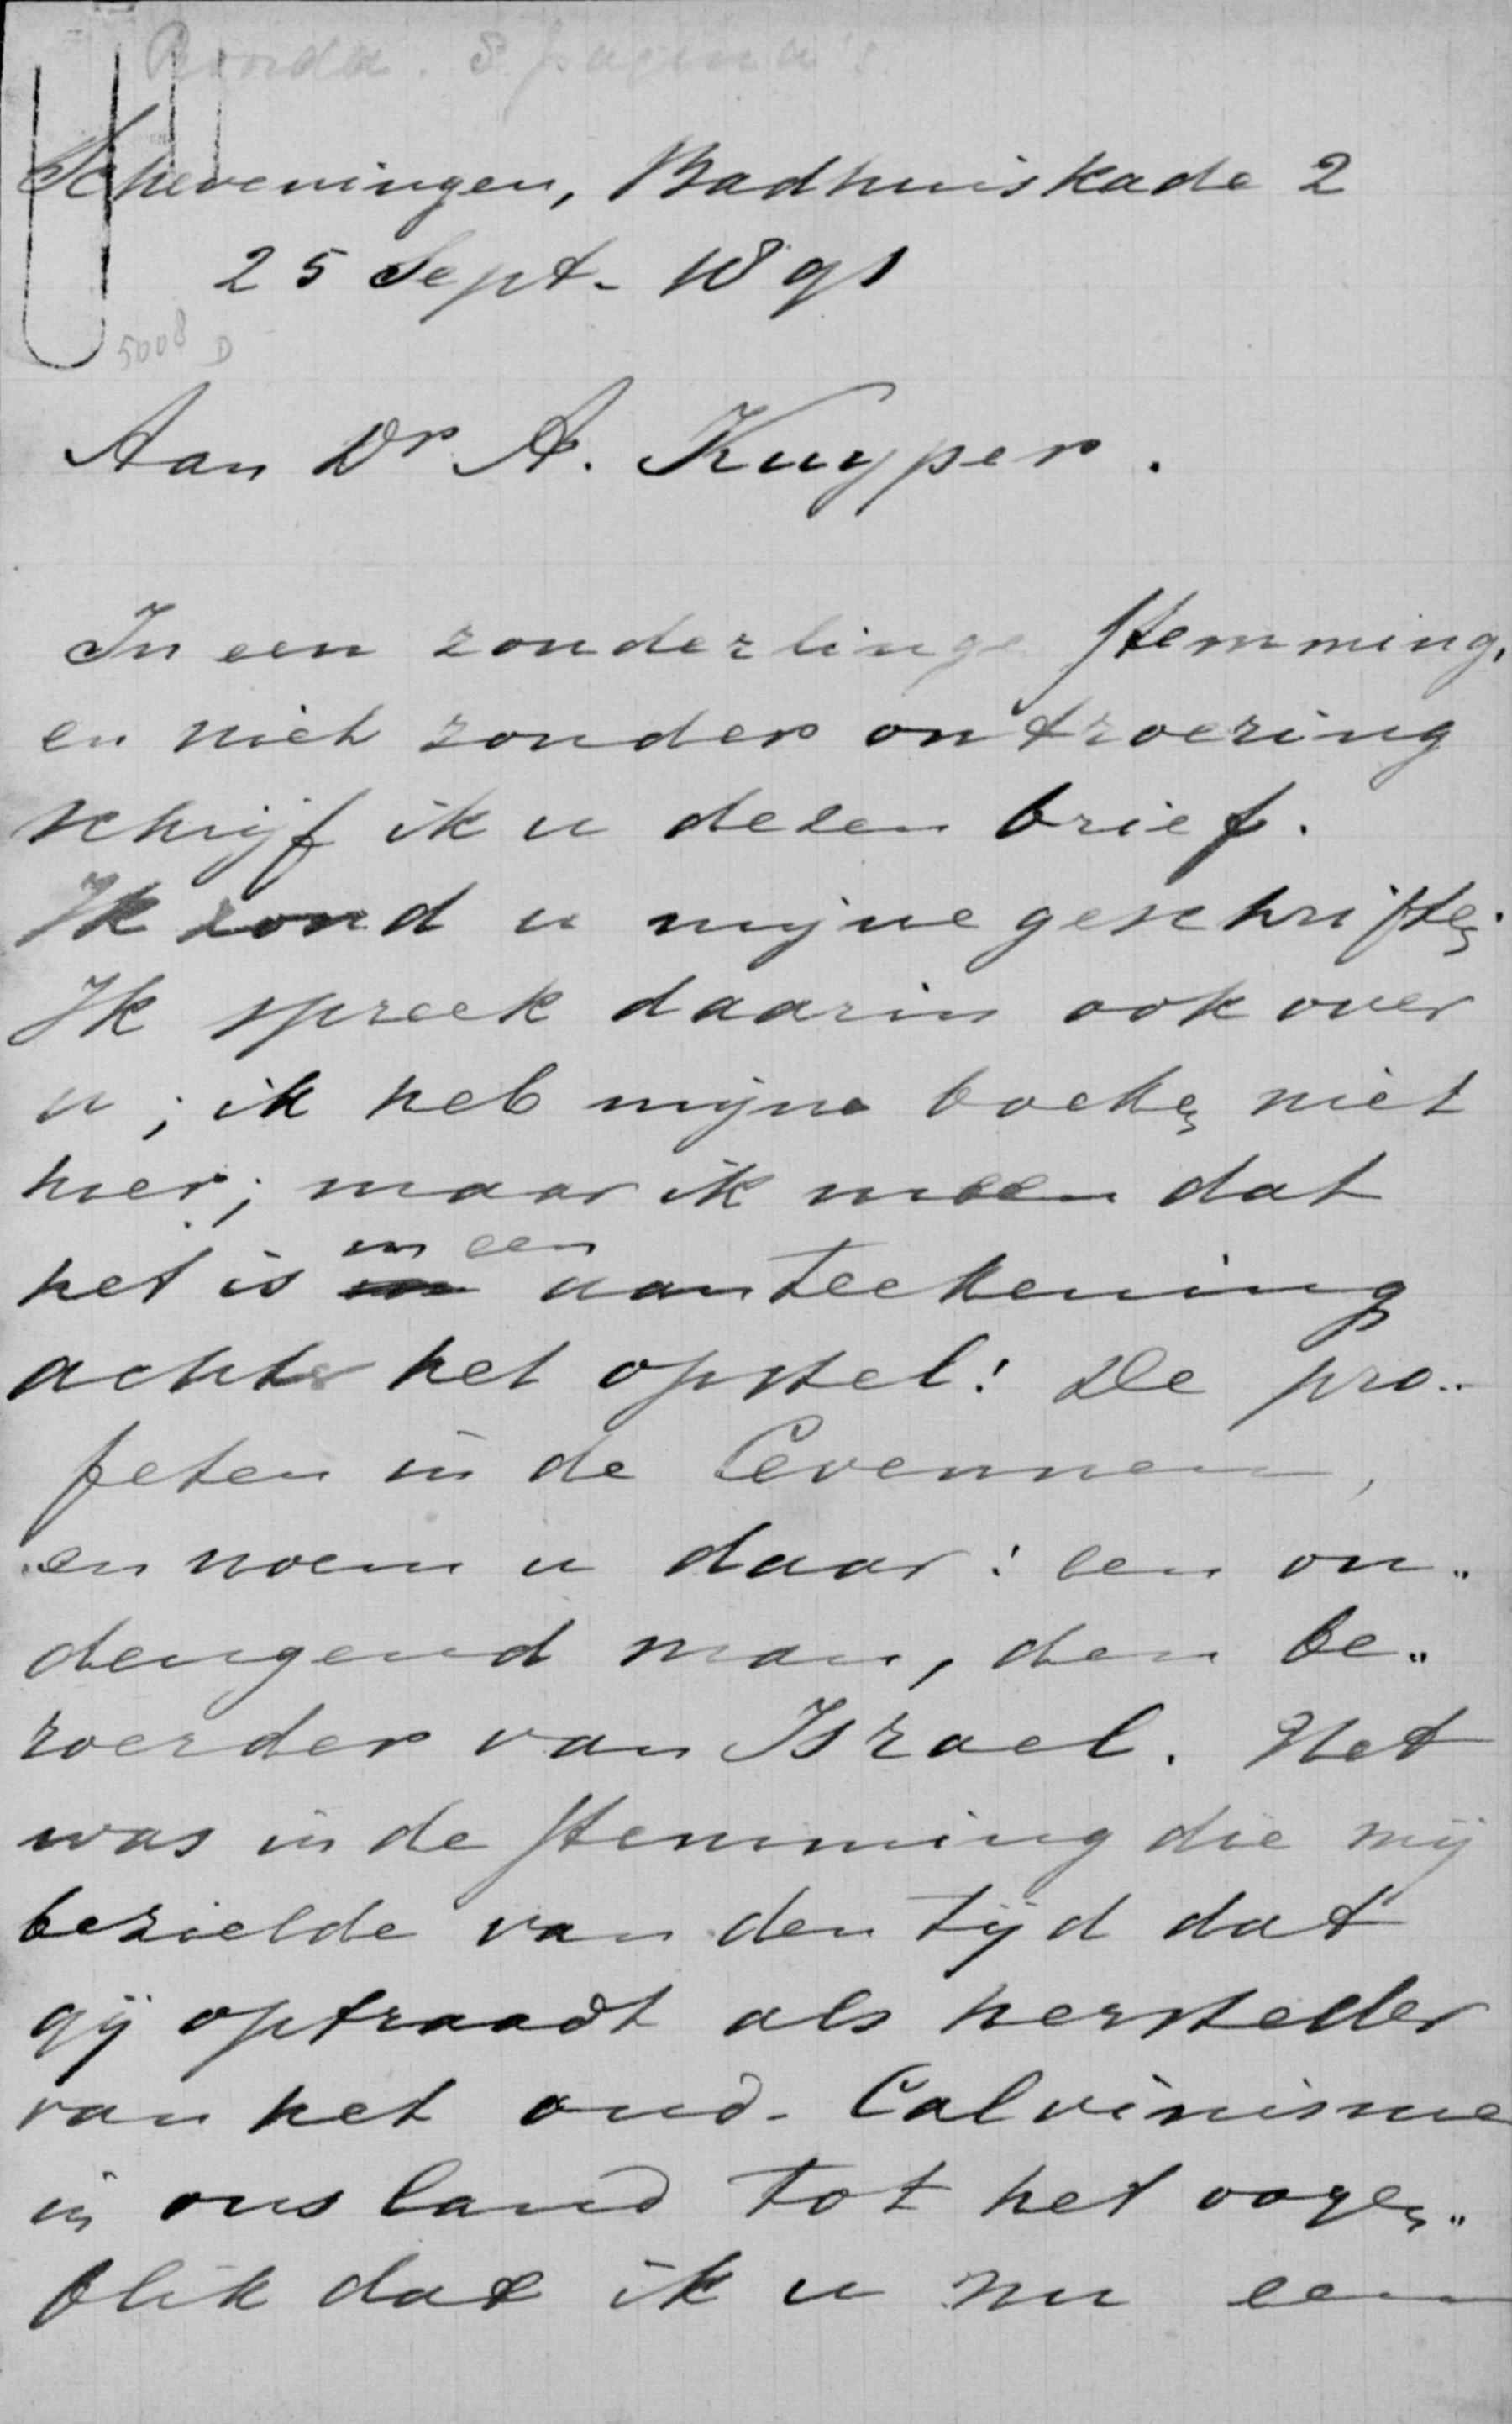 Roorda. 8 pagina's
Scheveningen, Badhuiskade 2
25 Sept. 1891
5008 D
Aan Dr A. Kuyper.
In een zonderlinge stemming,
en niet zonder ontroering
schrijf ik u dezen brief.
Ik zond u mijne geschriften;
Ik spreek daarin ook over
u; ik heb mijne boeken niet
hier; maar ik meen dat
in een
het is aanteekening
achter het opstel: De pro„
feten in de Cevennen,
en noem u daar: een on„
deugend man, den be„
roerder van Israel. Het
was in de stemming die mij
bezielde van den tijd dat
gij optraadt als hersteller
van het oud-Calvinisme
in ons land tot het oogen„
blik dat ik u nu een